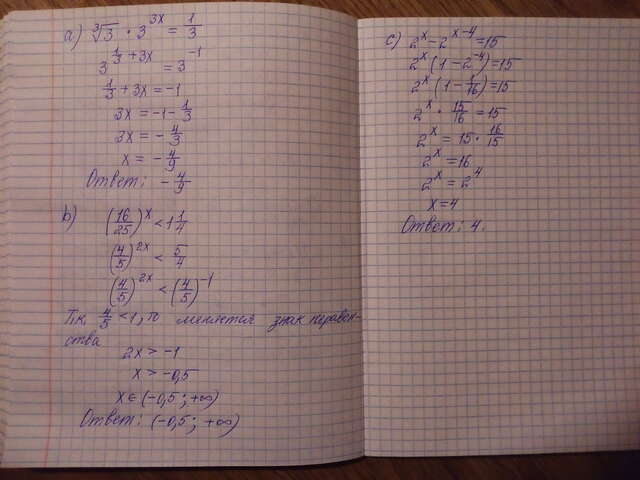 a) ∛3 · 3^(3x) = 1/3
3^(1/3 + 3x) = 3^(-1)
1/3 + 3x = -1
3x = -1 - 1/3
3x = - 4/3
x = - 4/9
Ответ: - 4/9
b) (16/25)^x < 1 1/4
(4/5)^(2x) < 5/4
(4/5)^(2x) < (4/5)^(-1)
Т.к. 4/5 < 1, то меняется знак неравен-
ства
2x > -1
x > -0,5
x ∈ (-0,5; +∞)
Ответ: (-0,5; +∞)
c) 2^x - 2^(x-4) = 15
2^x (1 - 2^(-4)) = 15
2^x (1 - 1/16) = 15
2^x · 15/16 = 15
2^x = 15 · 16/15
2^x = 16
2^x = 2^4
x = 4
Ответ: 4.